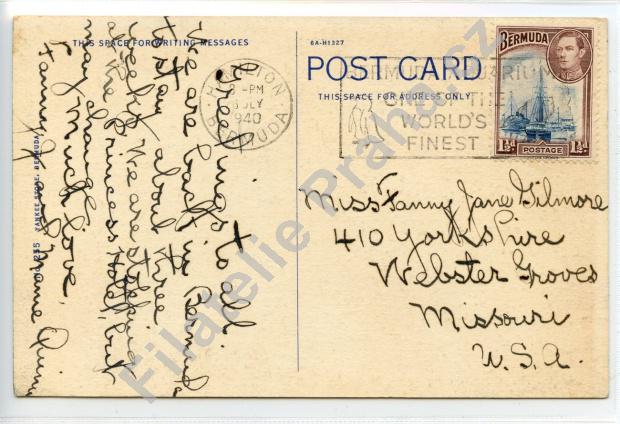 THIS SPACE FOR WRITING MESSAGES
6A-H1327
POST CARD
THIS SPACE FOR ADDRESS ONLY
HAMILTON
8 -PM
JLY
940
BERMUDA
BERMUDA AQUARIUM
ONE OF THE
WORLD'S
FINEST
BERMUDA
1½d POSTAGE 1½d
Greetings to all.
We are back in Bermuda
to stay about three
weeks. We are stopping
at the Princess Hotel, but
may change.
Much love,
Fanny J. and Mame Quinn
YANKEE STORE, BERMUDA
Miss Fanny Jane Gilmore
410 Yorkshire
Webster Groves
Missouri
U.S.A.
Filatelie Praha.cz